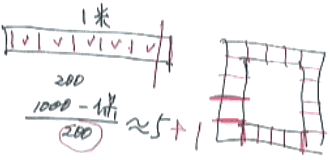 1米
200
1000-1缝
200
≈5+1